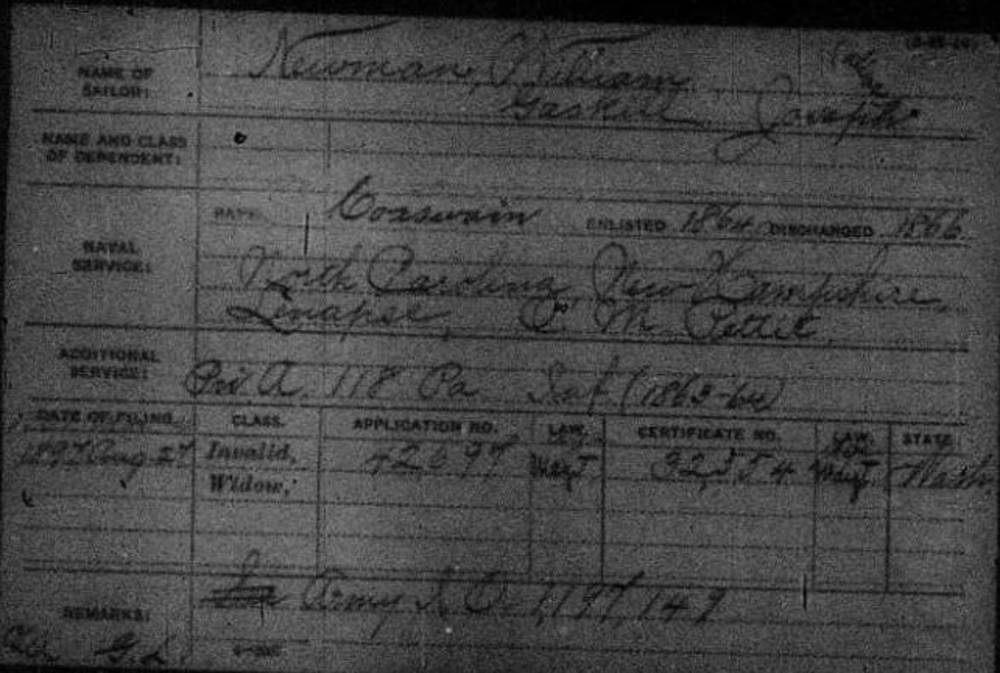 NAME OF SAILOR: Newman, William
Gaskill Joseph
NAME AND CLASS OF DEPENDENT:
NAVAL SERVICE: RATE Coxswain ENLISTED 1864 DISCHARGED 1866
North Carolina, New Hampshire,
Lenapee, C. M. Pettit.
ADDITIONAL SERVICE: Pri A. 118 Pa Inf (1863-64)
DATE OF FILING. CLASS. APPLICATION NO. LAW. CERTIFICATE NO. LAW. STATE
1897 Aug 27 Invalid, 42697 32554 Wash.
Widow,
REMARKS: Army I. O. 1,197,149
G.L.